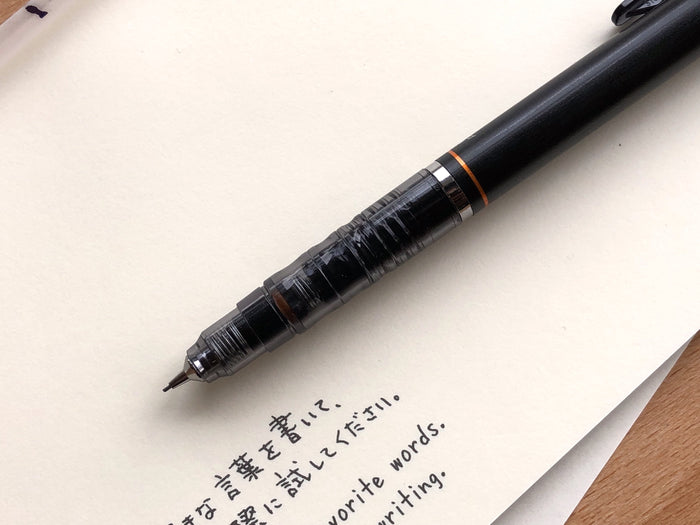 きな言葉を書いて、
際に試してください。
vorite words.
writing.